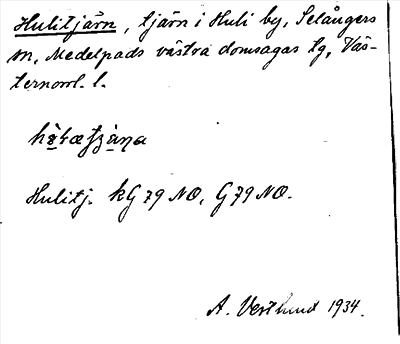 Hulitjärn, tjärn i Huli by, Selångers
sn, Medelpads västra domsagas tg, Väs-
ternorrl. l.
Hulitj. kG 79 NO, G 79 NO.
A. Vestlund 1934.